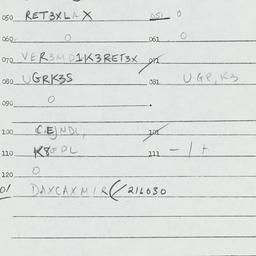 050 RET3XLAX 051 0
060 0 061 0
070 VER3MD1K3RET3X 071
080 UGRK3S 081 UGR,K3
090 0
100 CEJNDL, 101
110 K8EPL 111 - 1 +
120 0
DAXCAXM1R(/216030